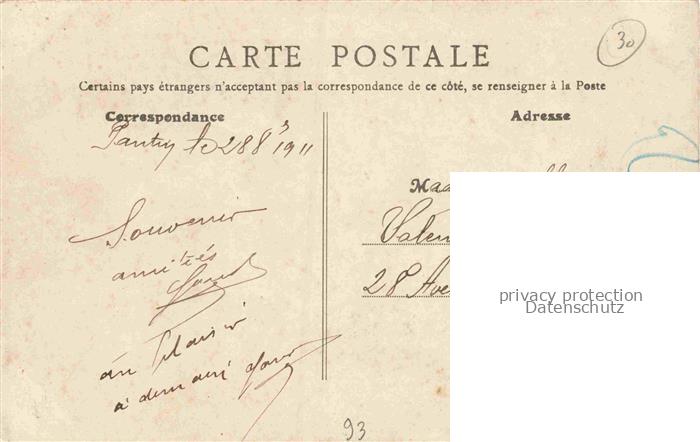 30
CARTE POSTALE
Certains pays étrangers n'acceptant pas la correspondance de ce côté, se renseigner à la Poste
Correspondance
Pantin le 28 8 1911
Souvenir
amitiés
au Plaisir
à demain
93
Adresse
Mad
Valen
28 Ave
privacy protection
Datenschutz